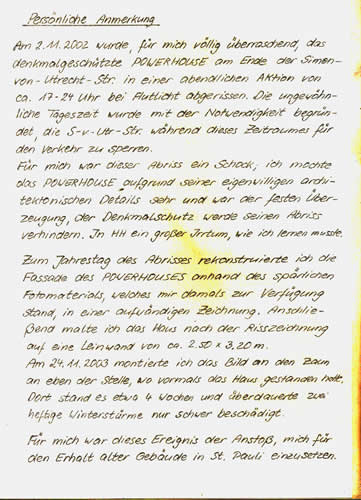 Persönliche Anmerkung
Am 2.11.2002 wurde, für mich völlig überraschend, das
denkmalgeschützte POWERHOUSE am Ende der Simon-
von-Utrecht-Str. in einer abendlichen Aktion von
ca. 17-24 Uhr bei Flutlicht abgerissen. Die ungewöhn-
liche Tageszeit wurde mit der Notwendigkeit begrün-
det, die S-v-Utr-Str. während dieses Zeitraumes für
den Verkehr zu sperren.
Für mich war dieser Abriss ein Schock; ich mochte
das POWERHOUSE aufgrund seiner eigenwilligen archi-
tektonischen Details sehr und war der festen Über-
zeugung, der Denkmalschutz werde seinen Abriss
verhindern. In HH ein großer Irrtum, wie ich lernen musste.
Zum Jahrestag des Abrisses rekonstruierte ich die
Fassade des POWERHOUSES anhand des spärlichen
Fotomaterials, welches mir damals zur Verfügung
stand, in einer aufwändigen Zeichnung. Anschlie-
ßend malte ich das Haus nach der Risszeichnung
auf eine Leinwand von ca. 2.50 x 3,20 m.
Am 24.11.2003 montierte ich das Bild an den Zaun
an eben der Stelle, wo vormals das Haus gestanden hatte.
Dort stand es etwa 4 Wochen und überdauerte zwei
heftige Winterstürme nur schwer beschädigt.
Für mich war dieses Ereignis der Anstoß, mich für
den Erhalt alter Gebäude in St. Pauli einzusetzen.